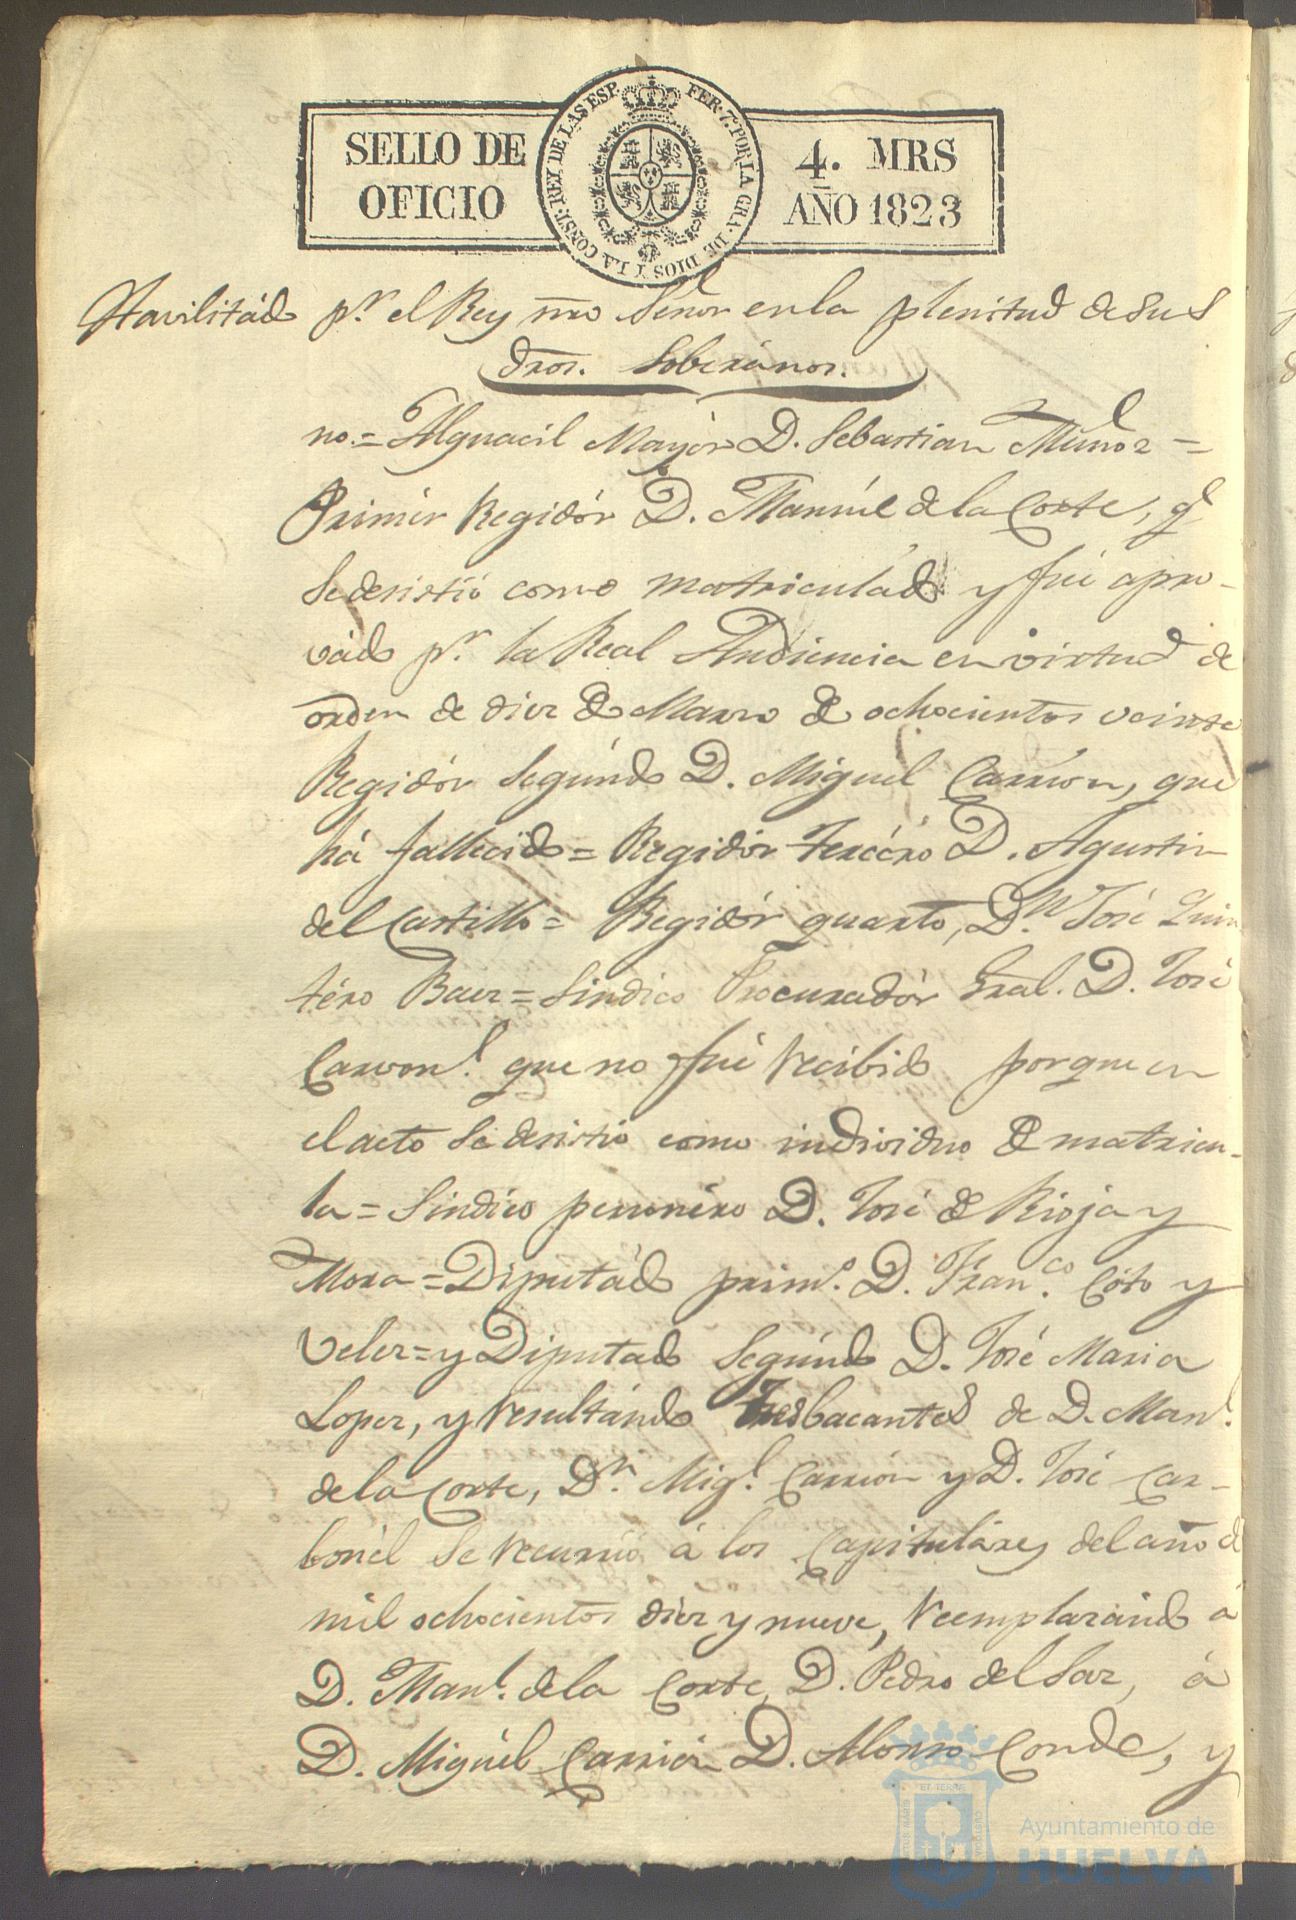 SELLO DE
OFICIO
FER. 7. POR LA GRA. DE DIOS Y LA CONST. REY DE LAS ESP.
4. MRS
AÑO 1823
Havilitádo pr. el Rey nro Señor en la plenitud de sus
dros. Soberános.
no.= Alguacil Mayór D. Sebastian Muñoz =
Primér Regidór D. Manúel de la Corte, q.
se desistió como matriculádo y fué apro-
vádo pr. la Real Audiencia en virtud de
orden de diez de Marzo de ochocientos veinte
Regidór Segúndo D. Miguel Carrion, que
há fallecido = Regidór tercéro D. Agustin
del Castillo = Regidór quarto, Dn. José Quin
téro Baez = Sindico Procuradór Gral. D. José
Carvonl. que no fué recibido porque en
el acto se desistió como individuo de matricu-
la = Sindico personéro D. José de Rioja y
Mora = Diputádo primo. D. Franco. Cóto y
Velez = y Diputado Segúndo D. José Maria
Lopez, y resultándo tres bacantes de D. Manl.
de la Corte, Dn. Migl. Carrion y D. José Car-
bonél se recurrió á los Capituláres del año de
mil ochocientos diez y nueve, reemplazándo á
D. Manl. de la Corte, D. Pedro del Saz, á
D. Miguél Carrión D. Alonso Conde, y
Ayuntamiento de
HUELVA